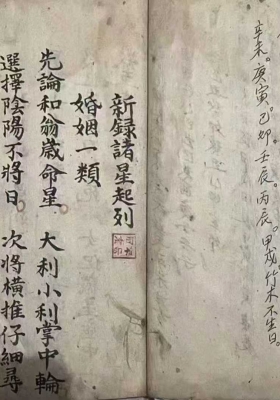 辛未。庚寅。己卯。壬辰。丙辰。甲戌竹木不生日。
新録諸星起列
婚姻一類
先論和翁歲命星。大利小利掌中輪
選擇陰陽不將日。次將横推仔細尋